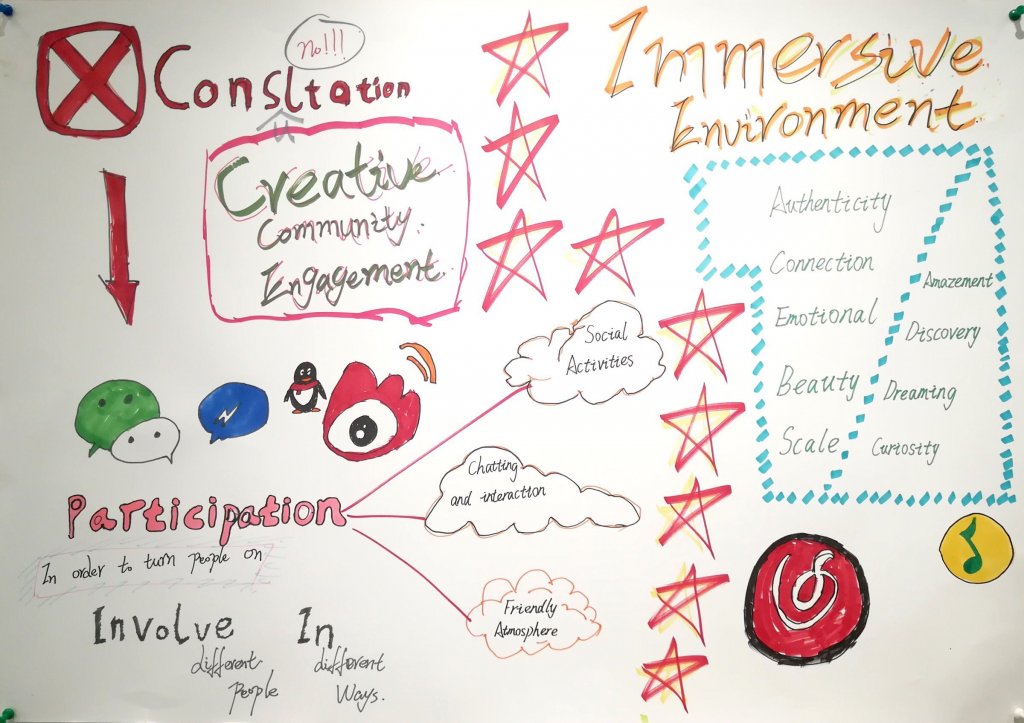 No!!!
Consltation
Creative
Community.
Engagement.
Immersive
Environment
Authenticity
Connection
Emotional
Beauty
Scale
Amazement
Discovery
Dreaming
Curiosity
Social
Activities
Chatting
and interaction
Friendly
Atmosphere
Participation
In order to turn people on
Involve
different
people
In
different
Ways.